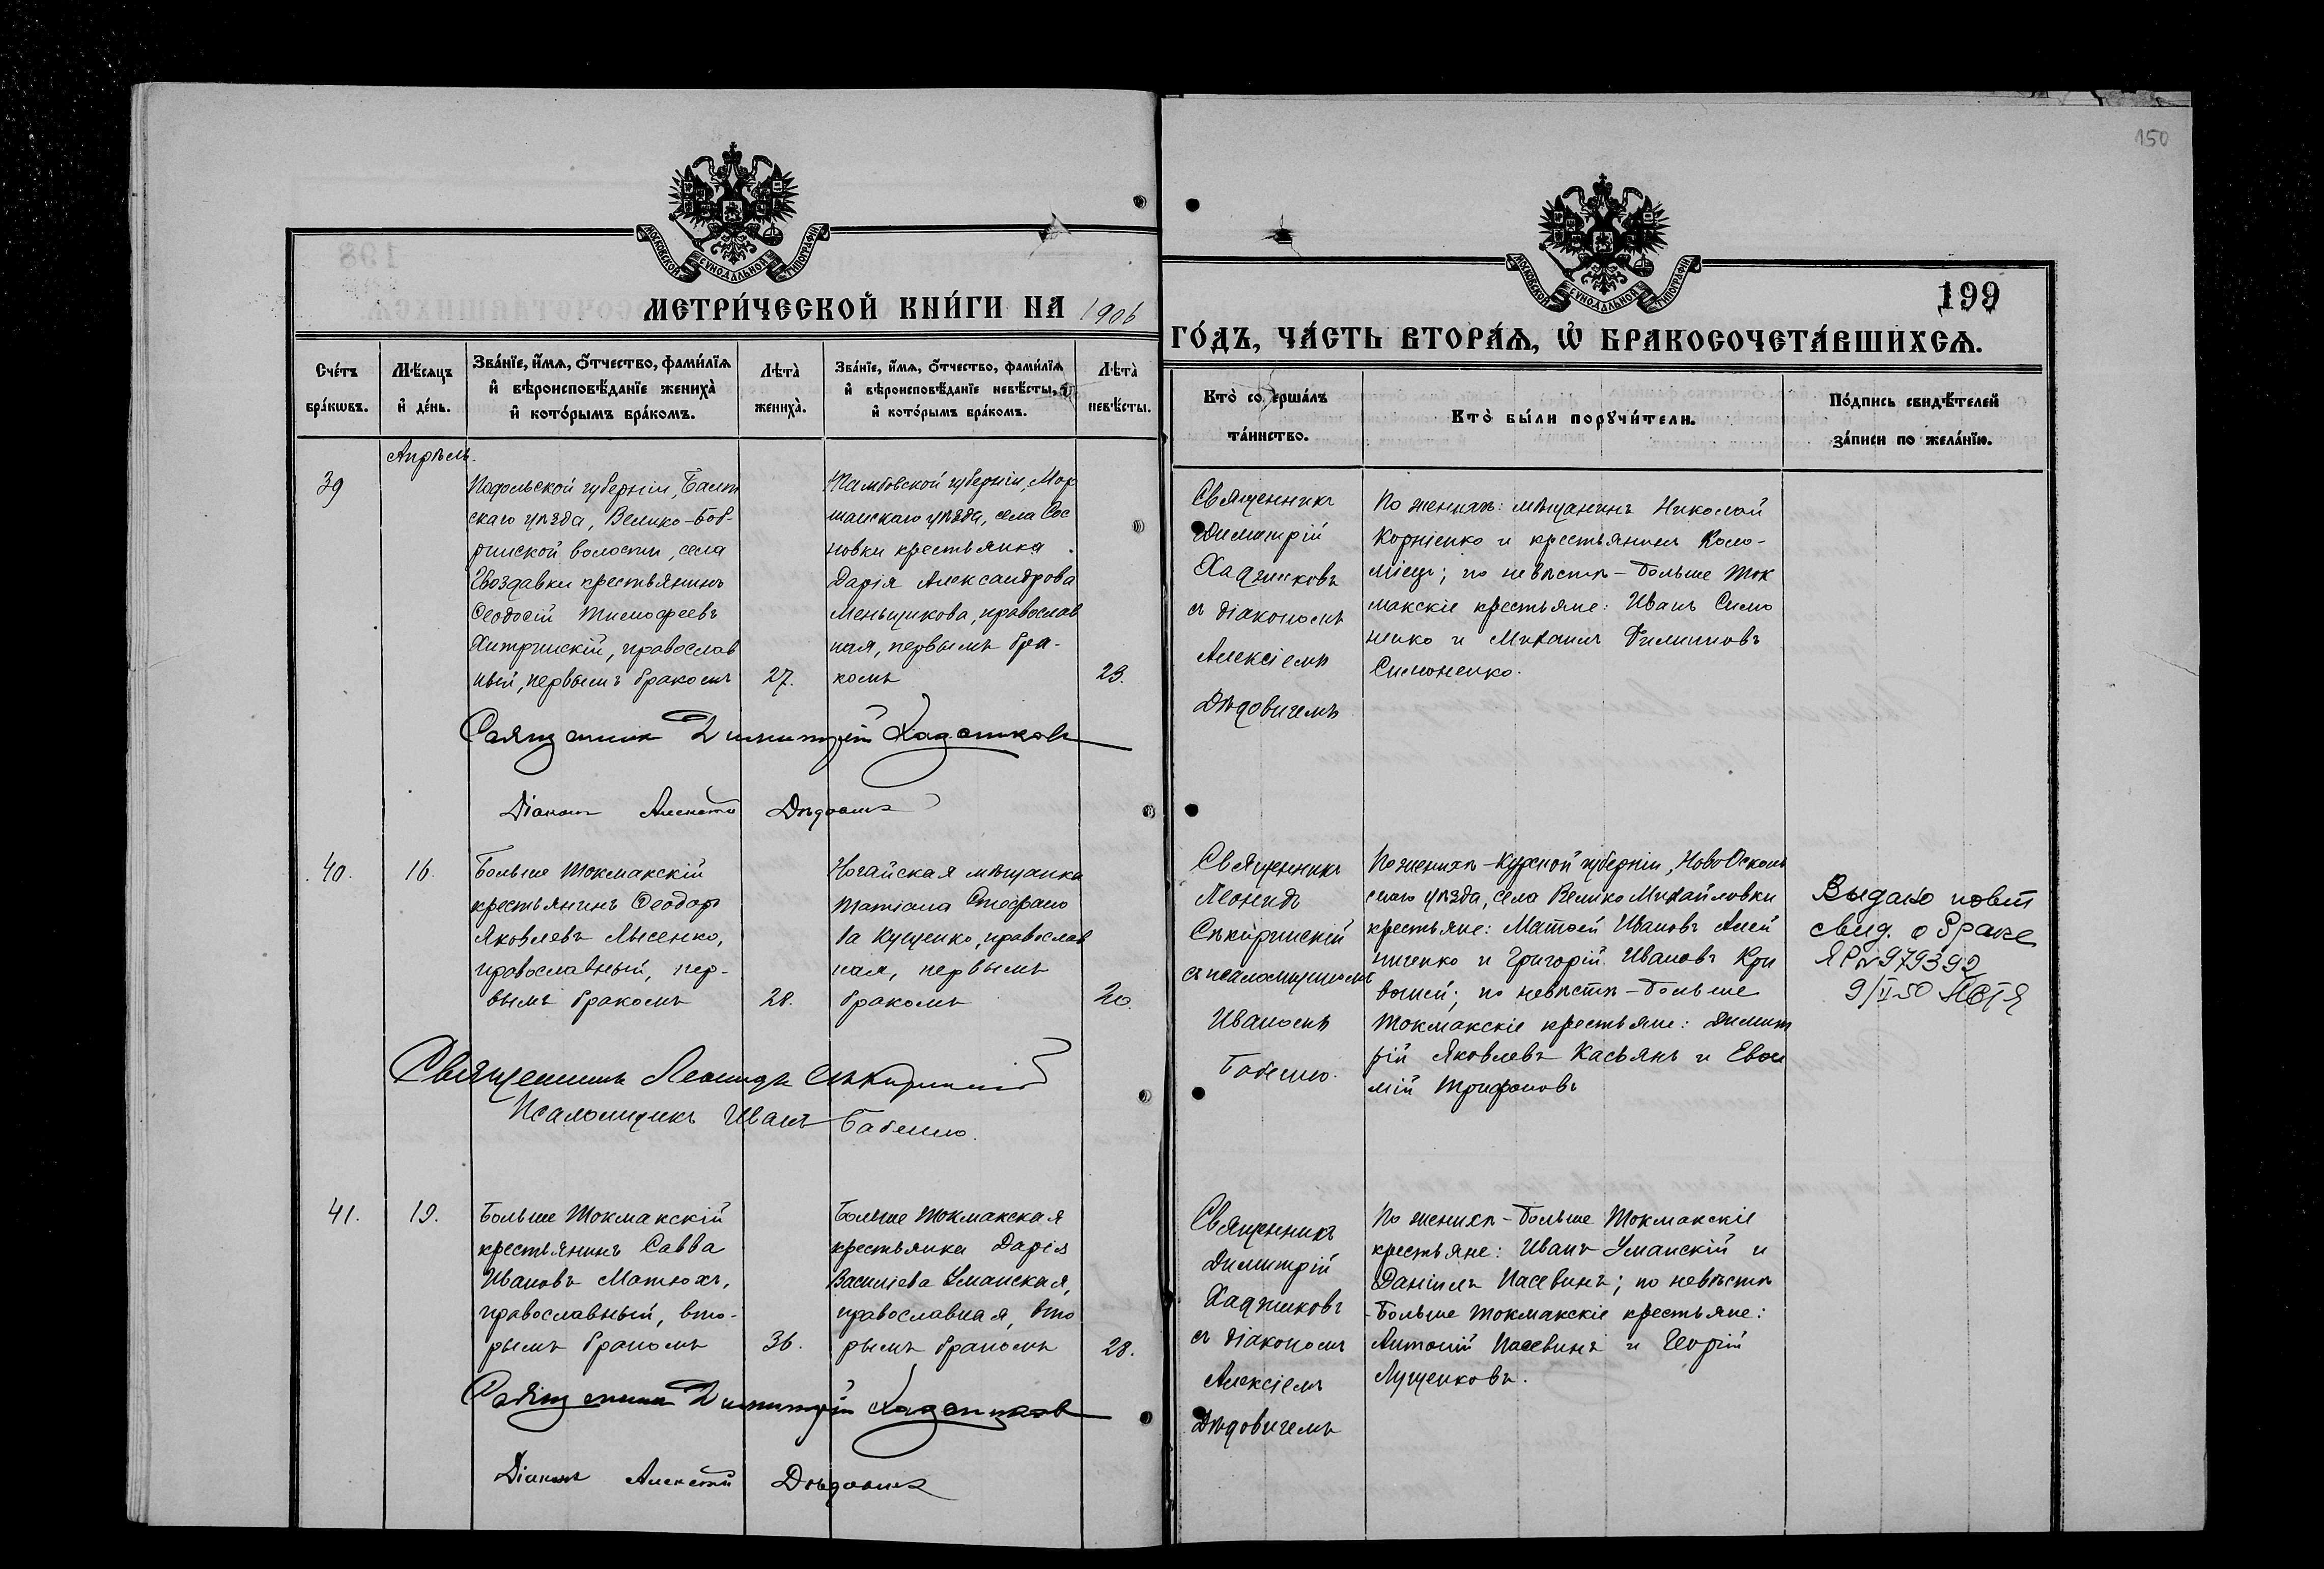 150
МОСКОВСКОЙ СѴНОДАЛЬНОЙ ТИПОГРАФІИ
МОСКОВСКОЙ СѴНОДАЛЬНОЙ ТИПОГРАФІИ
199
МЕТРИ́ЧЕСКОЙ КНИ́ГИ НА 1906
ГО́ДЪ, ЧА́СТЬ ВТОРА́Ѧ, Ѡ҆ БРАКОСОЧЕТА́ВШИХСѦ.
Сче́тъ бра́кѡвъ.
Мѣ́сяцъ и҆ де́нь.
Зва́нїе, и҆́мѧ, о҆́тчество, фами́лїѧ
и҆ вѣроисповѣ́данїе жениха̀
и҆ кото́рымъ бра́комъ.
Лѣта̀ жениха̀.
Зва́нїе, и҆́мѧ, о҆́тчество, фами́лїѧ
и҆ вѣроисповѣ́данїе невѣ́сты, и҆
и҆ кото́рымъ бра́комъ.
Лѣта̀ невѣ́сты.
Кто̀ со ерша́лъ та́инство.
Кто̀ бы́ли порꙋчи́тели.
По́дпись свидѣ́телей за́писи по жела́нїю.
Апрѣль.
39
Подольской губерніи, Балт
скаго уѣзда, Велико-Боб-
ринской волости, села
Гвоздавки крестьянинъ
Ѳеодосій Тимофеевъ
Хитринскій, православ
ный, первымъ бракомъ
27.
Тамбовской губерніи, Мор
шанскаго уѣзда, села Сос
новки крестьянка
Дарія Александрова
Меньщикова, православ
ная, первымъ бра-
комъ
23.
Священникъ
Димитрій
Хаджиковъ
съ діакономъ
Алексіемъ
Дѣдовичемъ
По женихѣ: мѣщанинъ Николай
Корніенко и крестьянинъ Коло-
міецъ; по невѣстѣ - Больше Ток
макскіе крестьяне: Иванъ Симо
ненко и Михаилъ Филипповъ
Симоненко.
Священникъ Димитрій Хаджиковъ
Діаконъ Алексій Дѣдовичъ
40.
16.
Больше Токмакскій
крестьянинъ Ѳеодоръ
Яковлевъ Лысенко,
православный, пер-
вымъ бракомъ
28.
Ногайская мѣщанка
Татіана Стефано
ва Куценко, православ
ная, первымъ
бракомъ
20.
Священникъ
Леонидъ
Сѣкиринскій
съ псаломщикомъ
Иваномъ
Бабенко.
По женихѣ - Курской губерніи, Ново Осколь
скаго уѣзда, села Велико Михайловки
крестьяне: Матѳей Ивановъ Алей
ниченко и Григорій Ивановъ Кри
вошей; по невѣстѣ - Больше
Токмакскіе крестьяне: Димит
рій Яковлевъ Касьянъ и Евѳи
мій Трифоновъ
Выдано повт
свид. о браке
ЯР № 979392
9/V 50
Священникъ Леонидъ Сѣкиринскій
Псаломщикъ Иванъ Бабенко.
41.
19.
Больше Токмакскій
крестьянинъ Савва
Ивановъ Матюхъ,
православный, вто-
рымъ бракомъ
36.
Больше Токмакская
крестьянка Дарія
Василіева Уманская,
православная, вто
рымъ бракомъ
28.
Священникъ
Димитрій
Хаджиковъ
съ діакономъ
Алексіемъ
Дѣдовичемъ
По женихѣ - Больше Токмакскіе
крестьяне: Иванъ Уманскій и
Даніилъ Пасевинъ; по невѣстѣ
- Больше Токмакскіе крестьяне:
Антоній Пасевинъ и Георгій
Луценковъ.
Священникъ Димитрій Хаджиковъ
Діаконъ Алексій Дѣдовичъ